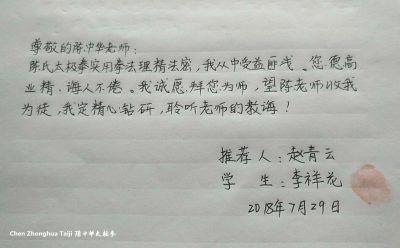 尊敬的陈中华老师：
陈氏太极拳实用拳法理精法密，我从中受益匪浅。您德高
业精，诲人不倦。我诚愿拜您为师，望陈老师收我
为徒，我定精心钻研，聆听老师的教诲！
推荐人：赵青云
学 生：李祥龙
2018年7月29日
Chen Zhonghua Taiji 陈中华太极拳